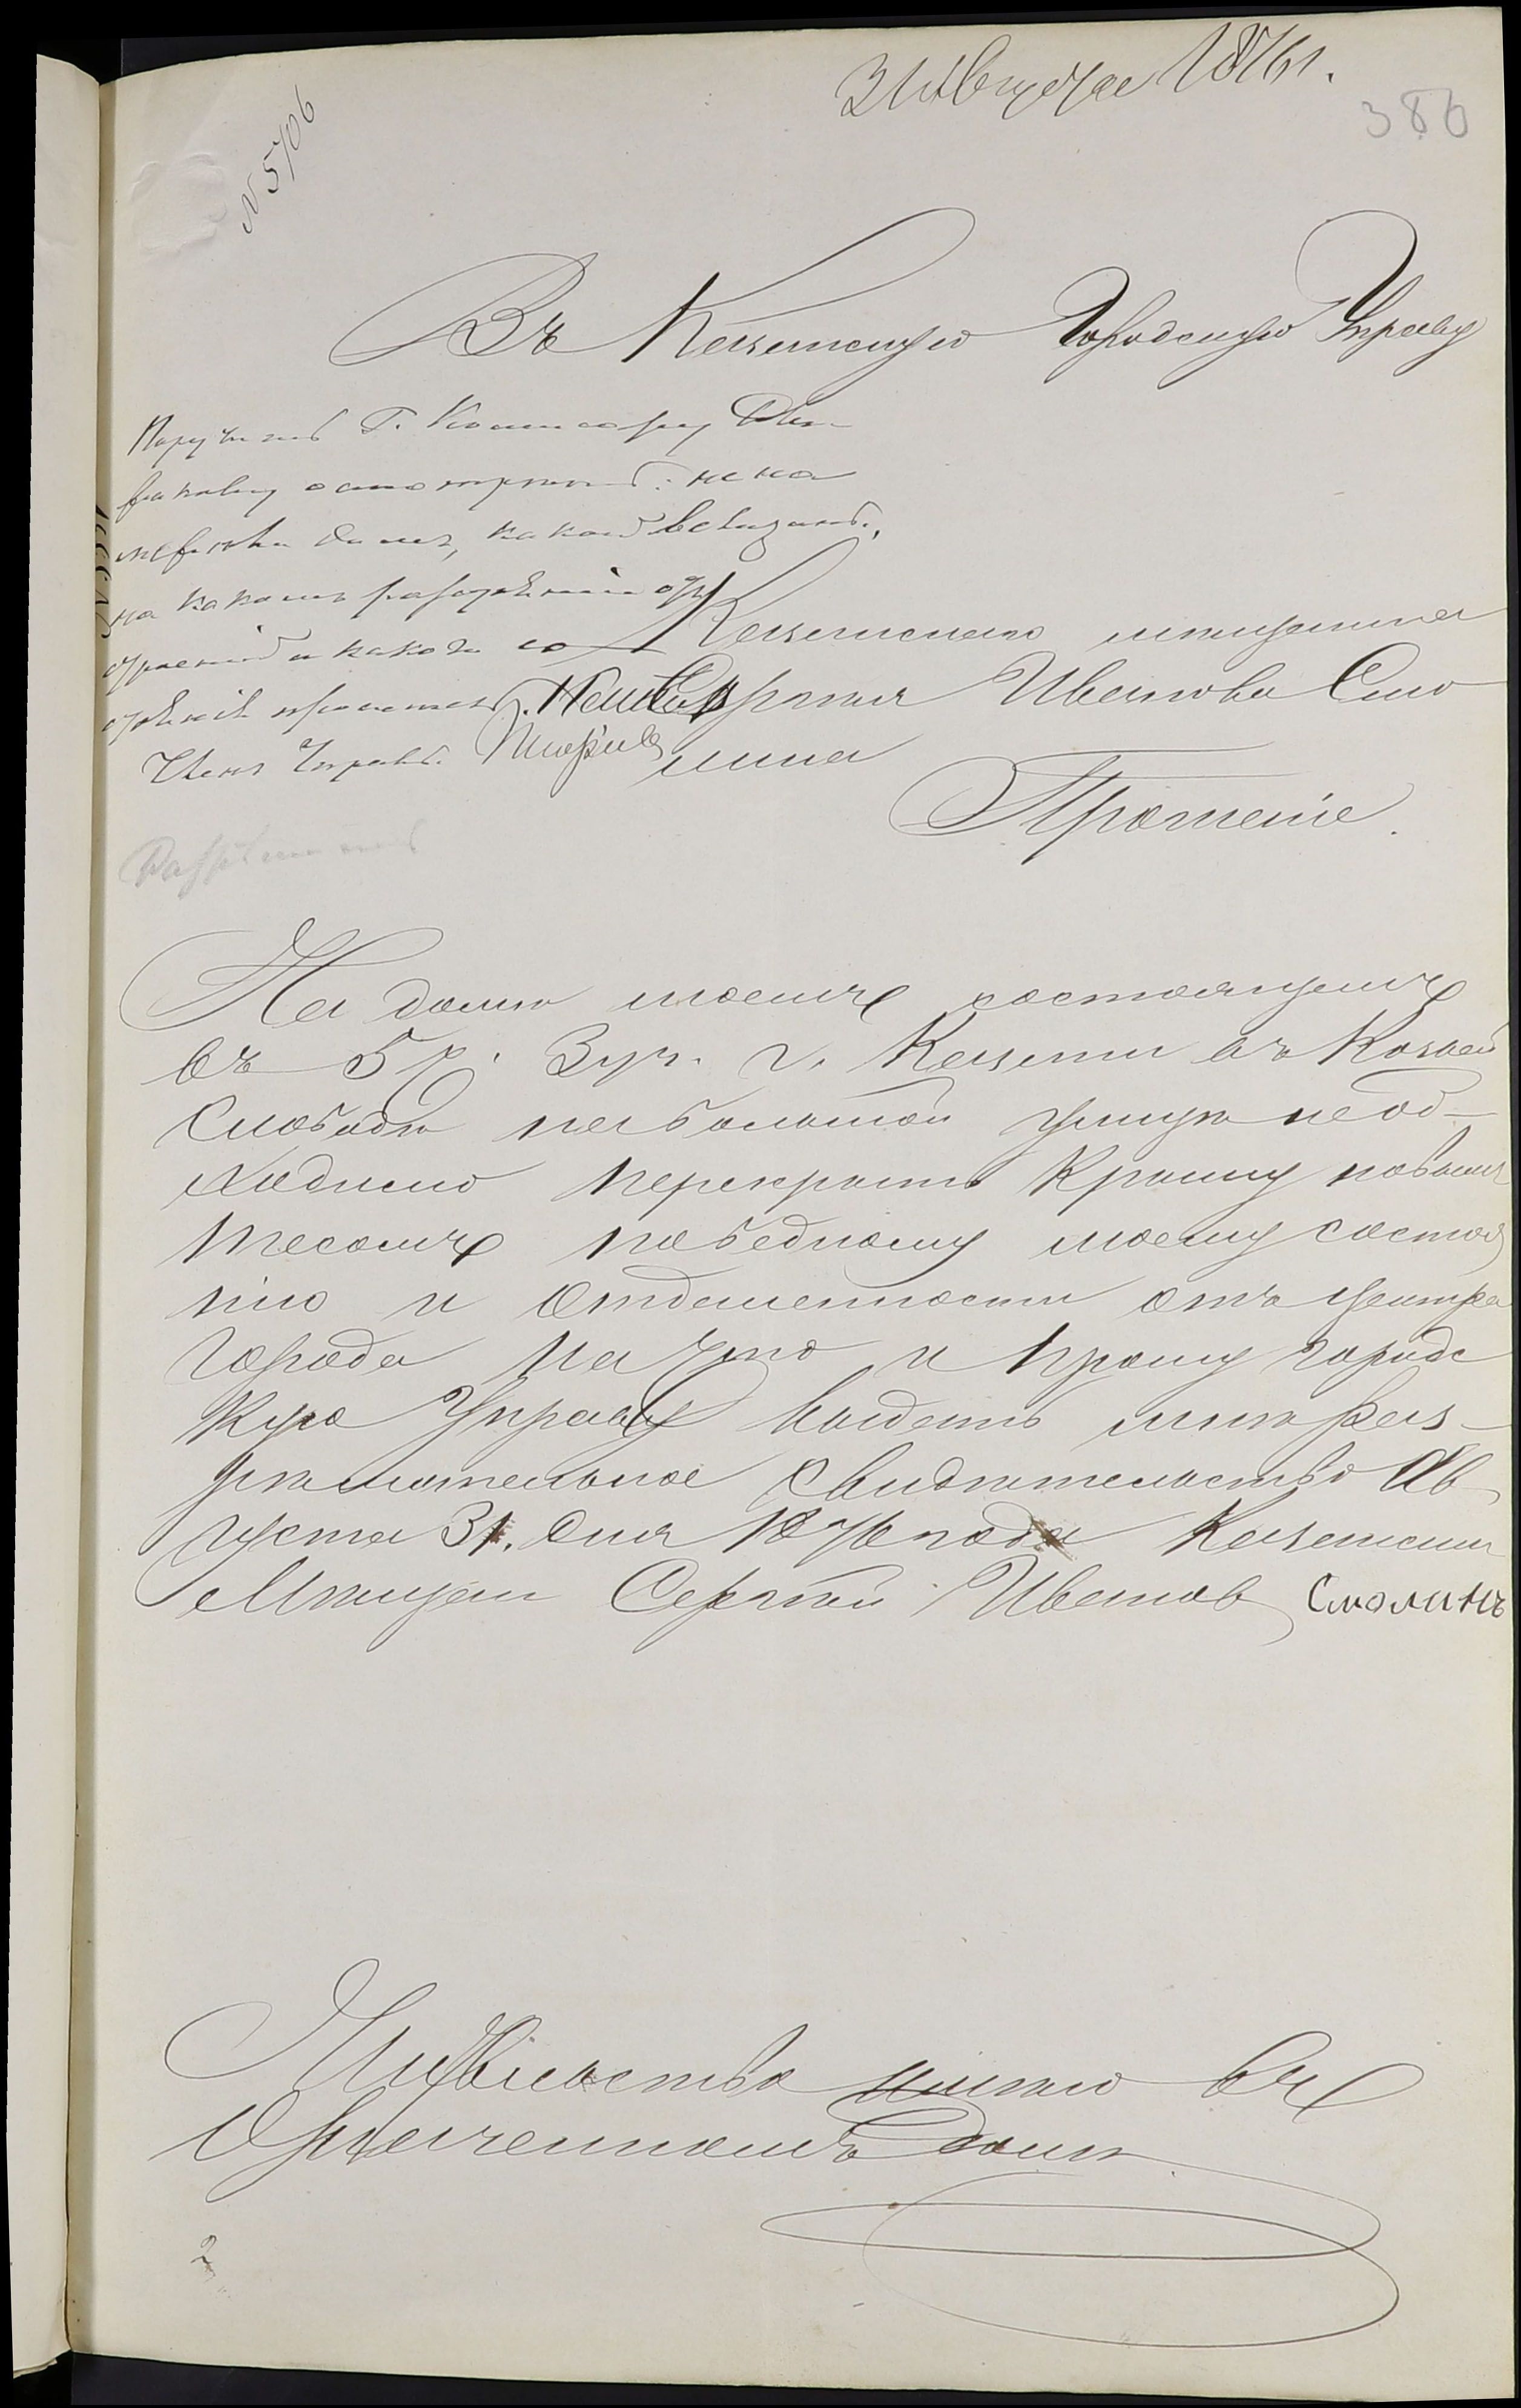 31 Августа 1876 г.
386
N 5706
Въ Казанскую Городскую Управу
Поручить Г. Комисару
осмотреть: не на
дома, какой величины,
на какомъ разстояніи отъ
строеній и какого со
стояніе просителя.
Членъ Управы
Казанскаго мещанина
Сергѣя Иванова Смо
лина
Прошеніе.
На домѣ моемъ состоящемъ
въ 5й. Зуч. г. Казани въ Козьей
Слободѣ на большой улицѣ необ-
ходимо перекрыть Крышу новымъ
тесомъ победному моему состоя
нію и отдаленности отъ центра
города На что и прошу городс
кую Управу выдать мнѣ Раз-
рѣшительное Свидѣтельство Ав-
густа 31. дня 1876 года Казанскій
Мѣщан Сергѣй Иванов Смолинъ
Жительства имѣю въ
Означенномъ Домѣ.
2